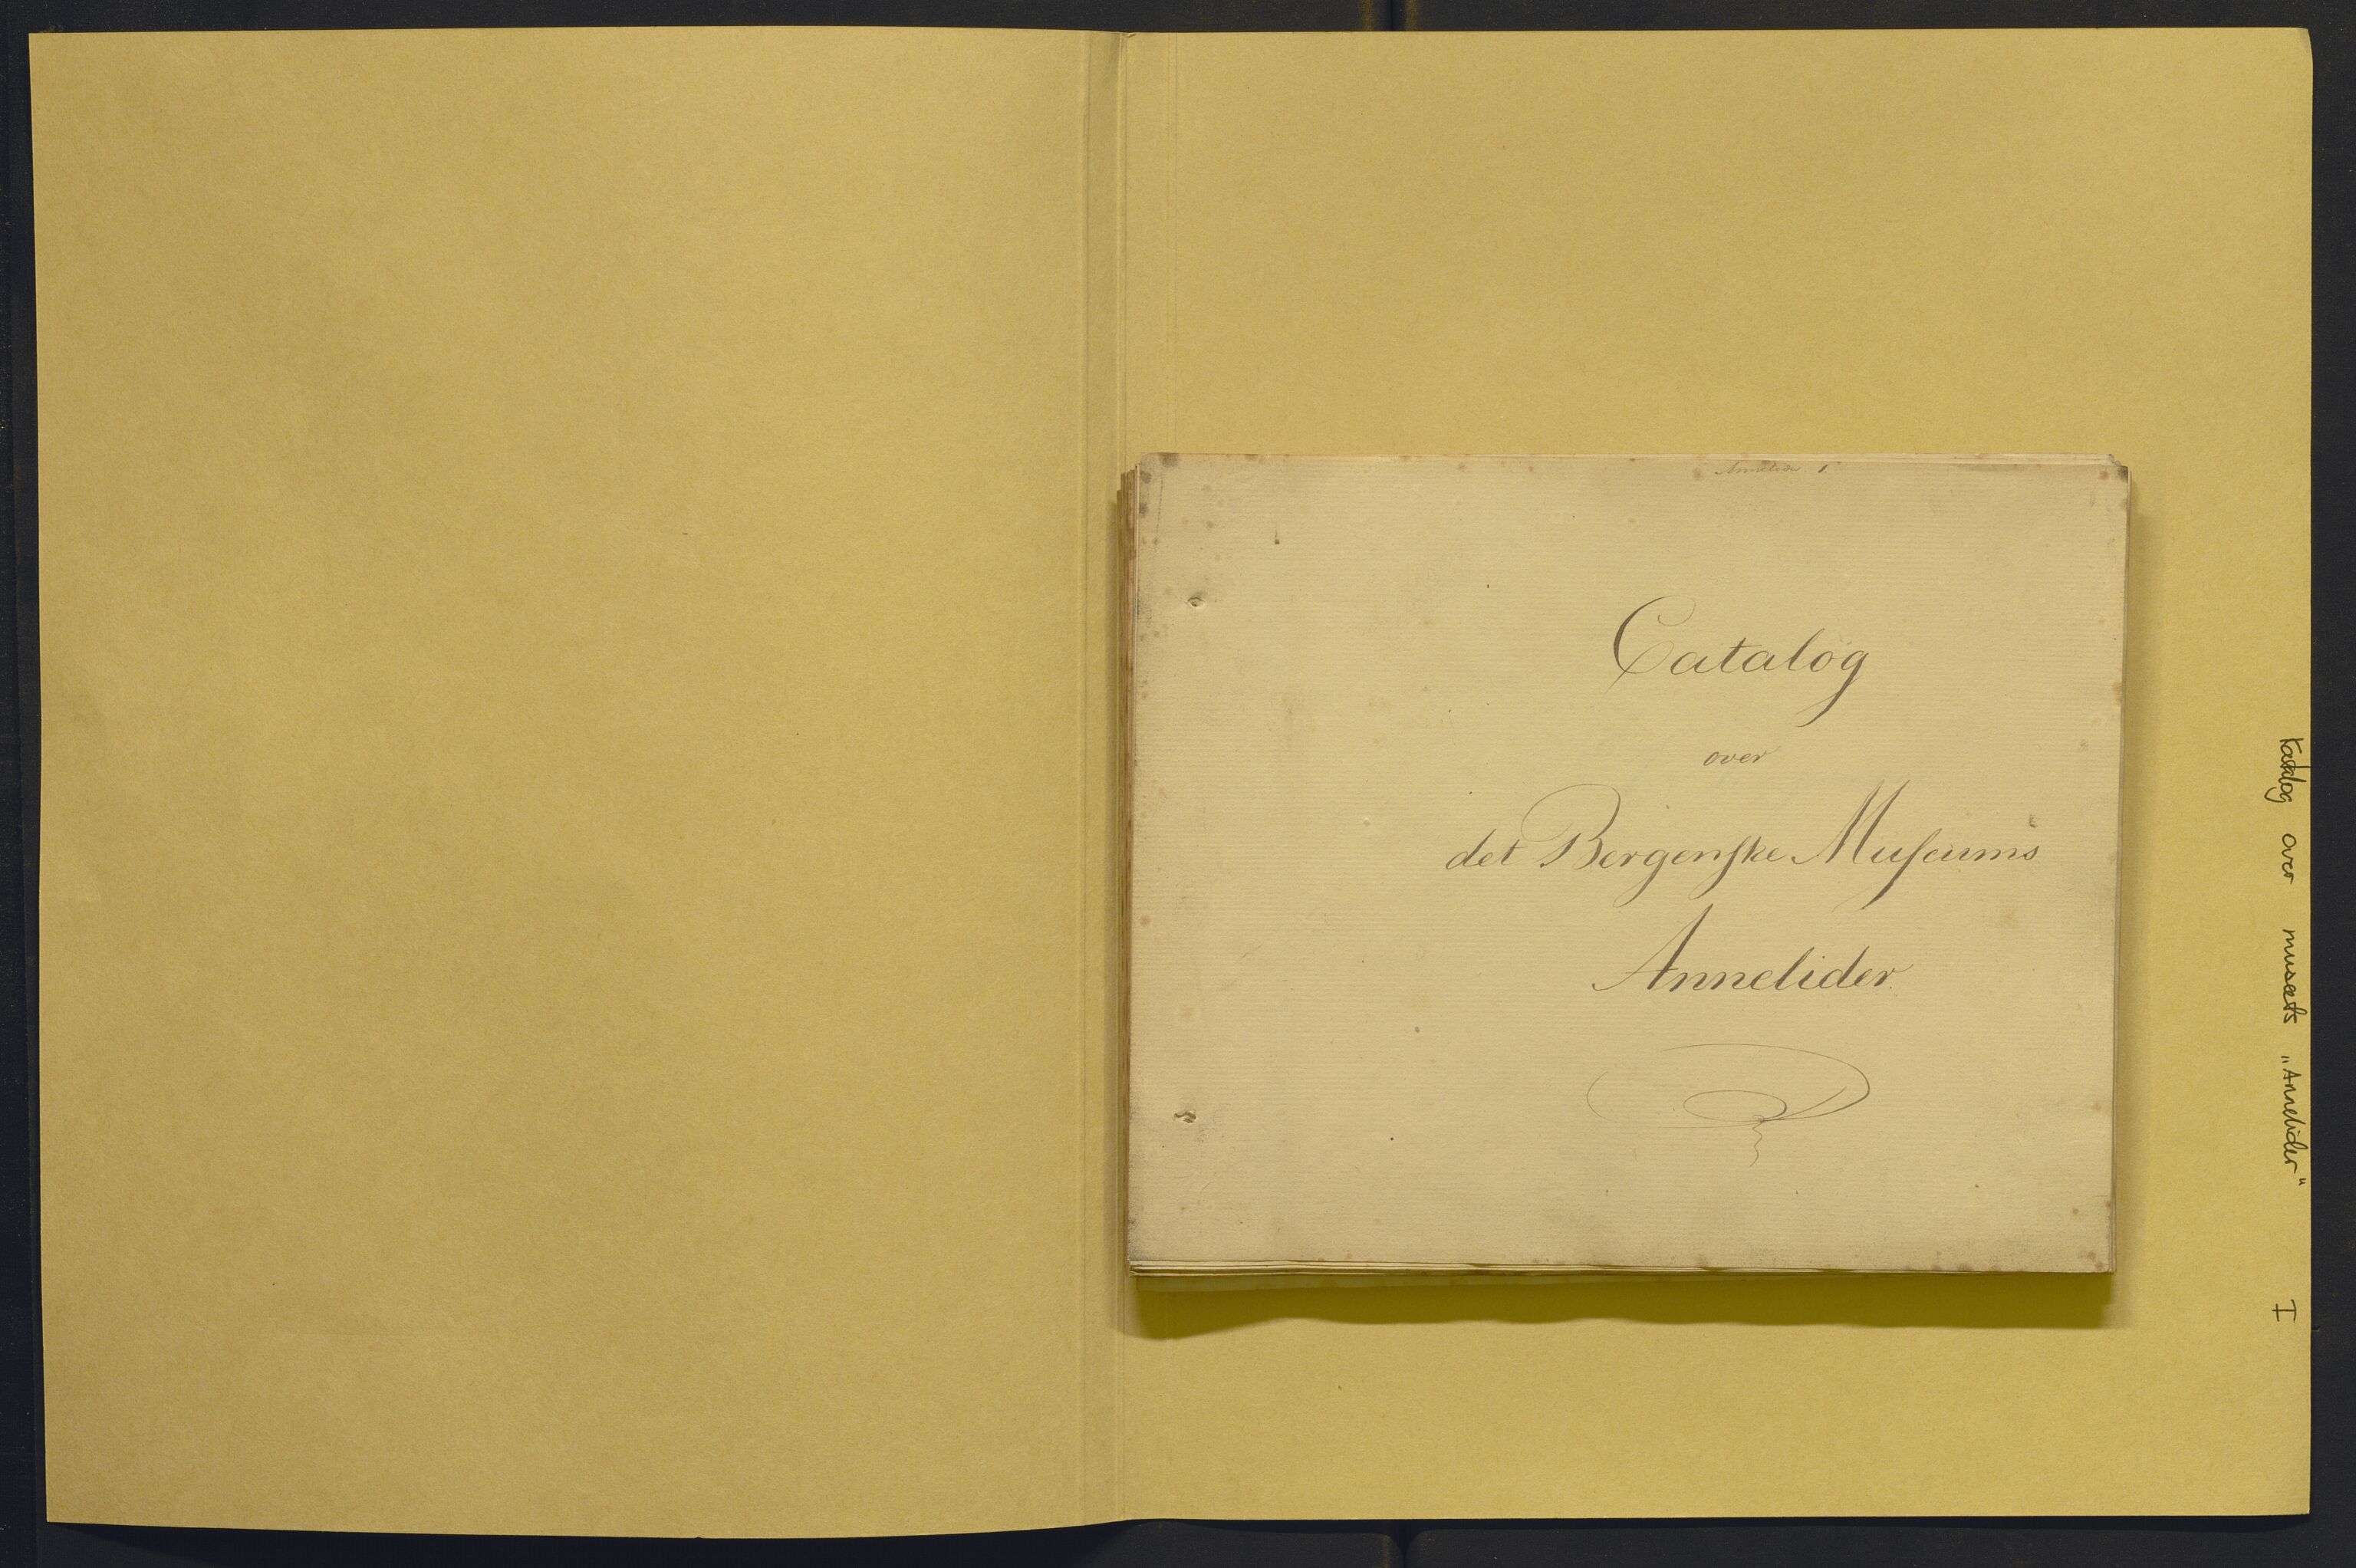 Annelider 1.
Catalog
over
det Bergenſke Muſeums
Annelider.
Katalog over museets „Annelider“ I